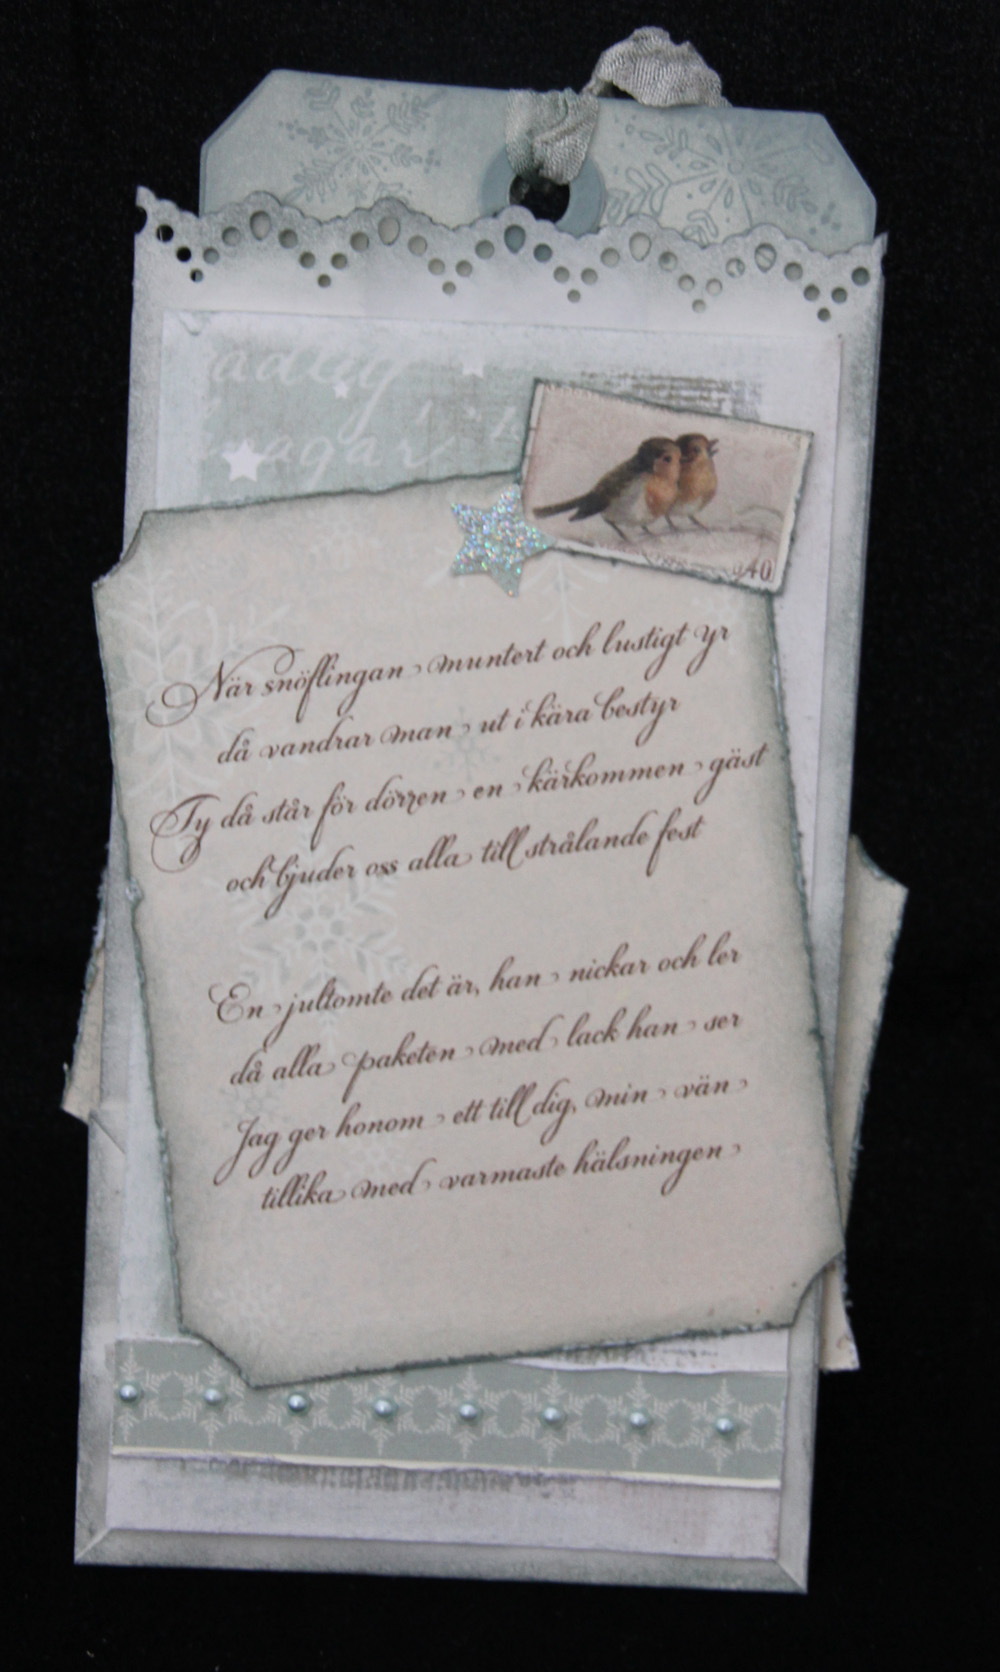 40
När snöflingan muntert och lustigt yr
då vandrar man ut i kära bestyr
Ty då står för dörren en kärkommen gäst
och bjuder oss alla till strålande fest
En jultomte det är, han nickar och ler
då alla paketen med lack han ser
Jag ger honom ett till dig, min vän
tillika med varmaste hälsningen